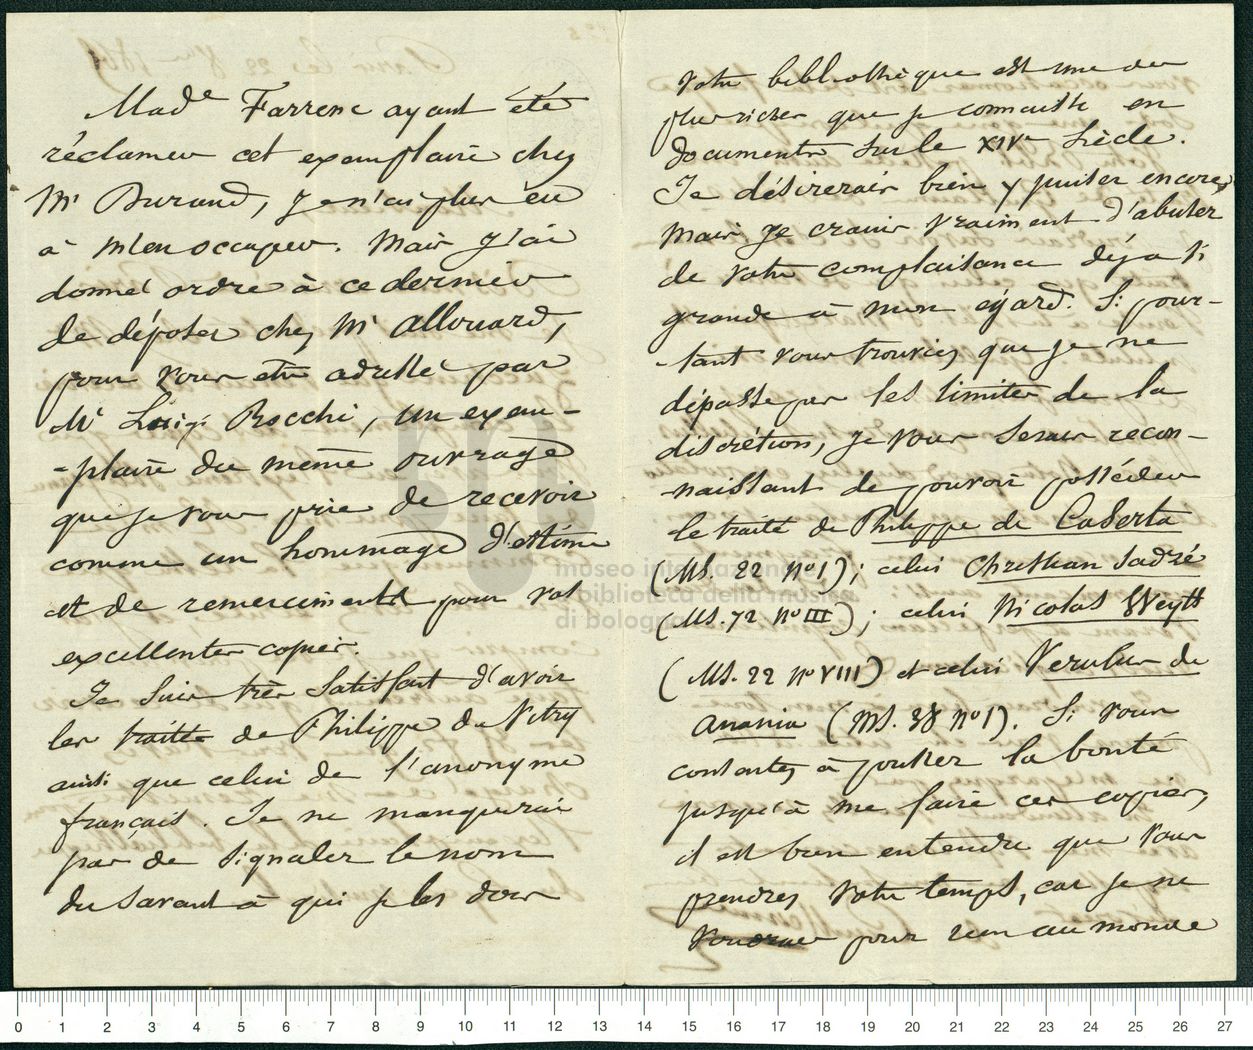 Made Farrenc ayant été
réclamer cet exemplaire chez
Mr Durand, je n'ai plus eu
à m'en occuper. Mais j'ai
donné ordre à ce dernier
de déposer chez Mr Allouard,
pour vous être adressé par
Mr Luigi Bocchi, un exem-
-plaire du même ouvrage
que je vous prie de recevoir
comme un hommage d'estime
et de remerciments pour vos
excellentes copies.
Je suis très satisfait d'avoir
les traités de Philippe de Vitry
ainsi que celui de l'anonyme
français. Je ne manquerai
pas de signaler le nom
du savant à qui je les dois
Votre bibliothèque est une des
plus riches que je connaisse en
documents sur le XIVe siècle.
Je désirerais bien y puiser encore,
mais je crains vraiment d'abuser
de votre complaisance déja si
grande à mon égard. Si pour-
-tant vous trouviez que je ne
dépasse pas les limites de la
discrétion, je vous serais recon-
naissant de pouvoir posséder
le traité de Philippe de Caserta
(Ms. 22 No I); celui Christian Sadze
(Ms. 72 No III); celui Nicolas Weyts
(Ms. 22 No VIII) et celui Verulus de
Anania (Ms. 38 No I). Si vous
consentez à pousser la bonté
jusqu'à me faire ces copies,
il est bien entendu que vous
prendrez votre temps, car je ne
voudrais pour rien au monde
museo internazionale
biblioteca della musica
di bologna
0 1 2 3 4 5 6 7 8 9 10 11 12 13 14 15 16 17 18 19 20 21 22 23 24 25 26 27